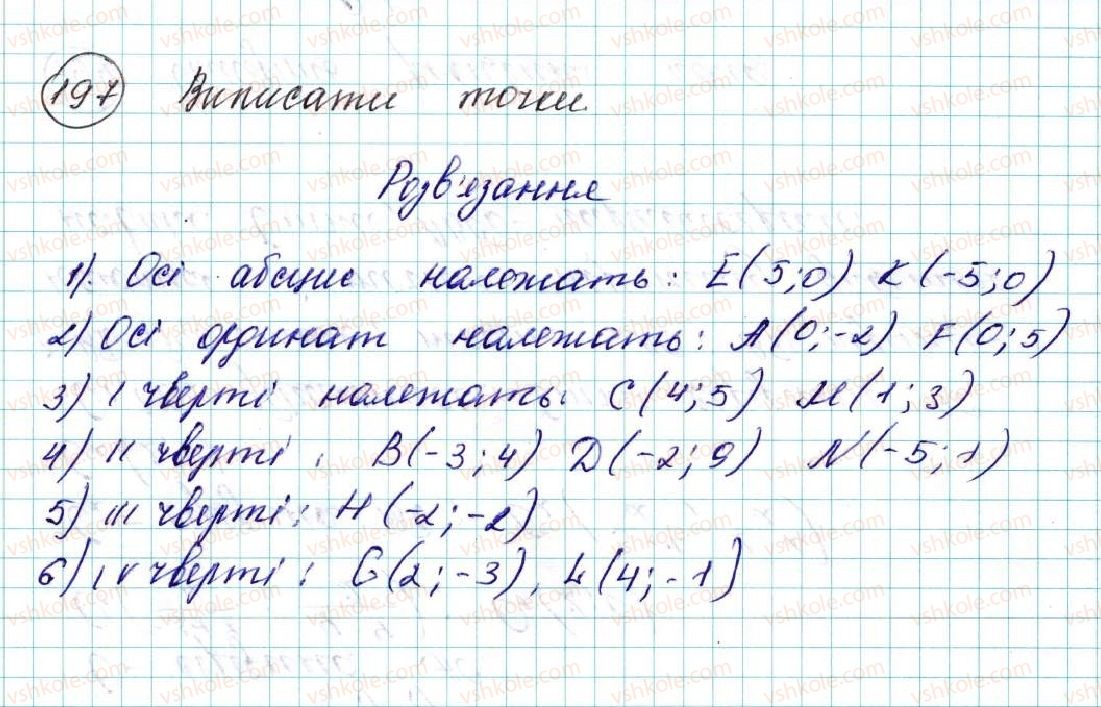 197 Виписати точки.
Розв'язання
1). Осі абсцис належать: E(5;0) K(-5;0)
2) Осі ординат належать: A(0;-2) F(0;5)
3) I чверті належать: C(4;5) M(1;3)
4) II чверті: B(-3;4) D(-2;9) N(-5;1)
5) III чверті: H(-2;-2)
6) IV чверті: G(2;-3), L(4;-1)
vshkole.com